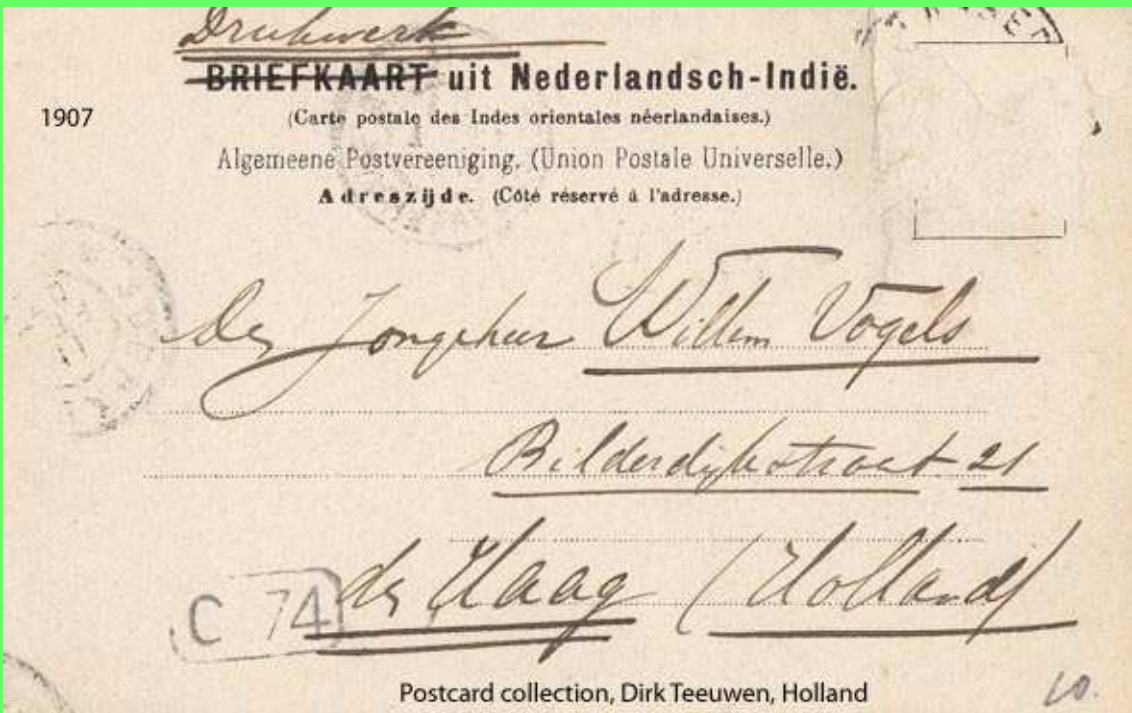 Drukwerk
BRIEFKAART uit Nederlandsch-Indië.
1907
(Carte postale des Indes orientales néerlandaises.)
Algemeene Postvereeniging. (Union Postale Universelle.)
Adreszijde. (Côté réservé à l'adresse.)
den Jongeheer Willem Vogels
Bilderdijkstraat 21
den Haag (Holland)
C 74
Postcard collection, Dirk Teeuwen, Holland
10.